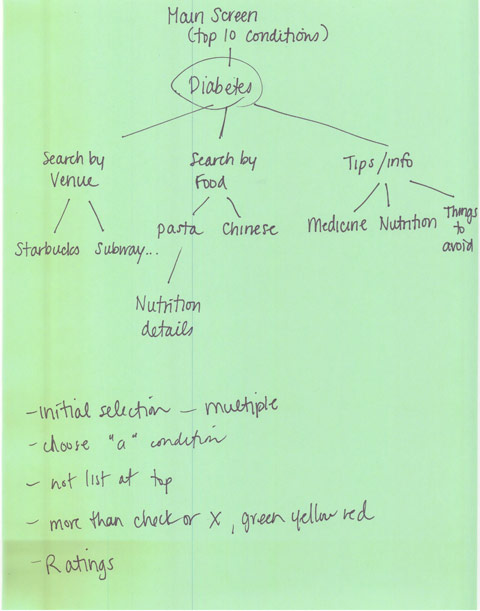 Main Screen
(top 10 conditions)
Diabetes
Search by
Venue
Search by
Food
Tips/info
Starbucks
Subway...
pasta
Chinese
Medicine
Nutrition
Things
to
avoid
Nutrition
details
- initial selection - multiple
- choose "a" condition
- not list at top
- more than check or X, green yellow red
- Ratings